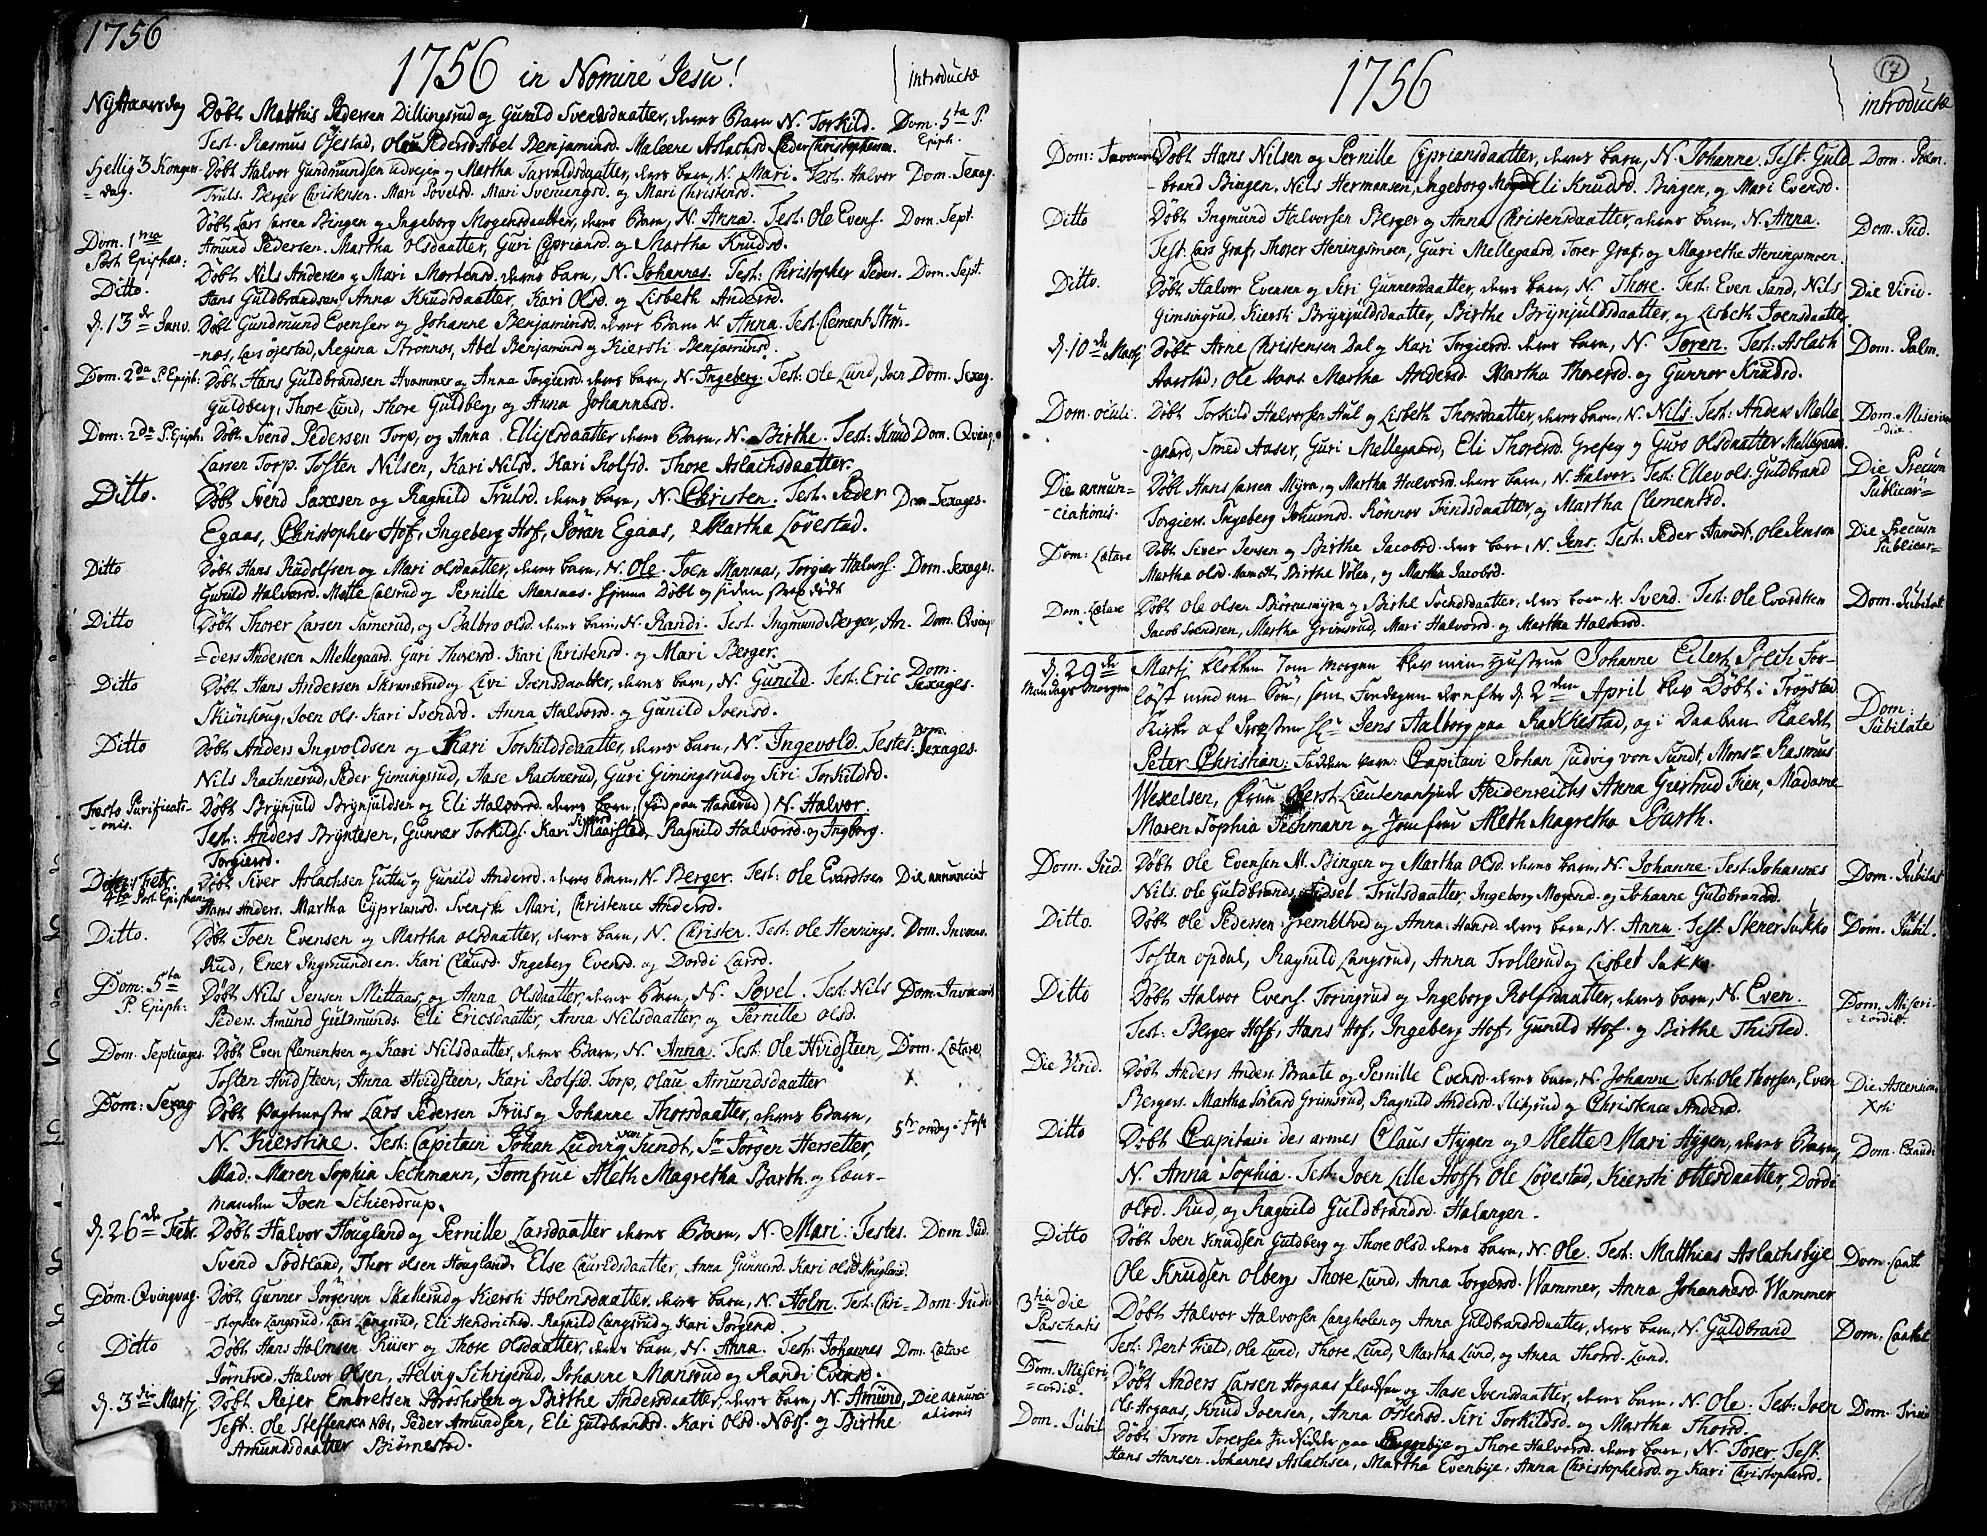 1756
1756 in Nomine Jesu!
introductæ
Nÿtaarsdag Døbt Matthis Pedersen Dillingsrud og Gunild Svendsdaatter, deres Barn N. Torkild. Dom. 5ta P. Epiph.
Test. Rasmus Øjestad, Olau Pedersd Abel Benjaminsd. Maleene Aslachsd. Peder Christophersen.
Hellig 3 Kongers dag Døbt Halvor Gundmundsen udvejen og Martha Tarvaldsdaatter, deres barn, N. Mari. Test. Halvor Dom. Sexag.
Truls. Berger Christensen. Mari Povelsd. Mari Sveningsd. og Mari Christensd.
Dom. 1ma Post Epiphan: Døbt Lars Larsen Bingen og Ingeborg Mogensdaatter, deres Barn, N. Anna. Test: Ole Evens. Dom. Sept.
Amund Pedersen. Martha Olsdaatter, Guri Cypriansd. og Martha Knudsd.
Ditto. Døbt Nils Andersen og Mari Mortensd. deres barn, N. Johannes. Test: Christopher Peders. Dom. Sept.
Hans Guldbrandsen, Anna Knudsdaatter, Kari Olsd. og Lisbeth Andersd.
d. 13de Janv. Døbt Gundmund Evensen og Johanne Benjaminsd. deres Barn N. Anna. Test. Clement Strøn-
-næs, Lars øjestad, Regina Strønnæs, Abel Benjaminsd og Kiersti Benjaminsd.
Dom. 2da P. Epiph: Døbt Hans Guldbrandsen Hvammer og Anna Torgiersd. deres barn, N. Ingeberg. Test: Ole Lund, Joen Dom. Sexag.
Guldberg, Thore Lund, Thore Guldberg, og Anna Johannesd.
Dom: 2da P. Epiph. Døbt Svend Pedersen Torp, og Anna Ellissdaatter deres Barn, N. Birthe. Test: Knud Dom. Qvinqv.
Larsen Torp. Tosten Nilsen, Kari Nilsd. Kari Rolfsd. Thore Aslachsdaatter.
Ditto. Døbt Svend Saxesen og Ragnild Trulsd. deres barn, N. Christen. Test. Peder Dom Sexages.
Egaas, Christopher Hof, Ingeberg Hof, Jøran Egaas, & Martha Løvestad.
Ditto Døbt Hans Rudolfsen og Mari olsdaatter, deres barn, N. Ole. Joen Mansaas, Torgier Halvors. Dom. Sexages.
Gunild Halvorsd. Mette Calsrud og Pernille Mansaas. hjemme Døbt og siden strax dødt
Ditto Døbt Thorer Larsen Samerud, og Balbro olsd. deres barn, N. Randi. Test. Ingmund Berger, An- Dom. Qvinqv
=ders Andersen Mellegaard. Guri Thoresd. Kari Christensd. og Mari Berger.
Ditto Døbt Hans Andersen Skramerud og Livi Joensdaatter, deres barn, N. Gunild. Test. Eric Dom. Sexages.
Skiønhoug, Joen Ols. Kari Svendsd. Anna Halvorsd. og Gunild Joensd.
Ditto Døbt Anders Ingvoldsen og Kari Torkildsdaatter, deres barn, N. Ingevold. Testes: Dom. Sexages.
Nils Rachnerud, Peder Gimingsrud, Aase Rachnerud, Guri Gimingsrud og Siri Torkildsd.
Festo Purificationis. Døbt Brÿnjuld Brÿnjuldsen og Eli Halvorsd. deres barn, (fød paa Hanerud) N. Halvor.
Test: Anders Brÿntesen, Gunner Torkilds. Kari Maarstad, Ragnild Halvorsd. og Ingborg.
Torgiersd.
4ta Post. Epiphan. Døbt Siver Aslachsen Guttu og Gunild Andersd. deres Barn, N. Berger. Test: Ole Evardtsen Die annunciat
Hans Anders. Martha Cypriansd. Svenske Mari, Christence Andersd.
Ditto. Døbt Joen Evensen og Martha olsdaatter, deres barn, N. Christen. Test: Ole Hennings. Dom. Invoc.
Rud, Ener Ingmundsen. Kari Clausd. Ingeberg Evensd. og Dordi Larsd.
Dom: 5ta P. Epiph: Døbt Nils Jensen Mittaas, og Anna Olsdaatter, deres Barn, N. Povel. Test. Nils Dom Invocavit
Peders. Amund Guldmunds. Eli Ericsdaatter, Anna Nilsdaatter, og Pernille olsd.
Dom. Septuages. Døbt Even Clementsen og Kari Nilsdaatter, deres Barn, N. Anna. Test: Ole Hvidsteen, Dom. Lætare
Tosten Hvidsteen, Anna Hvidsteen, Kari Rolfsd. Torp, Olau Amundsdaatter X
Dom: Sexag Døbt Pagtmester Lars Pedersen Friis og Johanne Thorsdaatter, deres Barn,
N. Kierstine. Test: Capitain Johan Ludvig von Sundt, Sr Jørgen Hersetter, 5te ondag i Faste
Mad: Maren Sophia Techmann, Jomfrue Aleth Magretha Barth. og Cour-
manden Joen Schierdrup.
d. 26de Febr. Døbt Halvor Hougland og Pernille Larsdaatter deres Barn, N. Mari. Testes. Dom Jud.
Svend Sødtland, Thor olsen Hougland, Else Lauridsdaatter, Anna Gunnersd. Kari olsd Hougland.
Dom. Qvinqvag. Døbt Gunner Jørgensen Skallerud og Kiersti Holmsdaatter, deres barn, N. Holm. Test. Chri= Dom. Judic
-stopher Langsrud, Lars Langsrud, Eli Hendrichsd. Ragnild Langsrud og Kari Jørgensd.
Ditto Døbt Hans Holmsen Riiser og Thore Olsdaatter, deres barn, N. Anna. Test. Johannes Dom. Lætare
Jørntved, Halvor Olsen, Helvig Schrigerud, Johanne Mansrud og Randi Evensd.
d. 3die Martj Døbt Rejer Embretsen Brosholen og Birthe Andersdaatter, deres barn, N. Amund, Die annunciationis
Test: Ole Steffensen Næs, Peder Amundsen, Eli Guldbrandsd. Kari Olsd. Næs. og Birthe
Amundsdaatter Biørnestad.
1756
17
introductæ
Dom: Invocavit Døbt Hans Nilsen og Pernille Cypriansdaatter, deres barn, N. Johanne. Test. Guld- Dom. Palm.
-brand Bingen, Nils Hermansen, Ingeborg Mogensd Eli Knudsd. Bingen, og Mari Evensd.
Ditto Døbt Ingmund Halvorsen Berger og Anna Christensdaatter, deres barn, N. Anna. Dom. Jud.
Test. Lars Graf, Thorer Heningsmoen, Guri Mellegaard, Torer Graf, og Magrethe Heningsmoen.
Ditto. Døbt Halvor Evensen og Siri Gunnersdaatter, deres barn, N. Thore. Test: Even Sand, Nils Die Virid.
Gimsingrud, Kiersti Brÿnjuldsdaatter, Birthe Brÿnjuldsdaatter, og Lisbeth Joensdaatter.
d. 10de Martj Døbt Arne Christensen Dal og Kari Torgiersd. deres barn, N. Toren. Test: Aslach Dom. Palm.
Aarstad, Ole Hans. Martha Andersd. Martha Thoresd. og Gunnor Knudsd.
Dom: oculi. Døbt Torkild Halvorsen Hul og Lisbeth Thorsdaatter, deres barn, N. Nils. Test: Anders Melle Dom. Misericordie
-gaard, Smed Aaser, Guri Mellegaard, Eli Thoresd. Grefsey og Guro Olsdaatter Mellegaard.
Die annunciationis. Døbt Hans Larsen Mÿra, og Martha Halvorsd. deres barn, N. Halvor. Test: Ellev ols. Guldbrand Die Precum Publicar=
Torgiers. Ingeberg Johannsd. Rønnov Findsdaatter, og Martha Clementsd.
Dom: Lætare Døbt Siver Jensen og Birthe Jacobsd. deres barn, N. Jens. Test: Peder Aamodt, Ole Jenson Die Precum Publicar=
Martha olsd. Aamodt, Birthe Volen, og Martha Jacobsd.
Dom. Lætare Døbt Ole olsen Biørnemÿra og Birthe Svendsdaatter, deres barn, N. Svend. Test: Ole Evardtsen Dom. Jubilat
Jacob Svendsen, Martha Grimsrud, Mari Halvorsd. og Martha Halvorsd.
d. 29de Mandags Morgen Martj klokken 7 om morgen blev min Hustrue Johanne Eilerts Pohli for-
løst med en Søn, som Fredagen derefter d. 2den April blev Døbt i Trøgstad Dom: Jubilate
Kirke af Præsten Hr. Jens Aalborg paa Rakkestad, og i Daaben Kaldet
Peter Christian. Fadderne vare: Capitain Johan Ludvig von Sundt, Monsr Rasmus
Wexelsen, Frue Oberst Lieutenantinde Heidenreichs Anna Giertrud Fien, Madame
Maren Sophia Techmann og Jomfrue Aleth Magretha Barth.
Dom. Jud. Døbt Ole Evensen M. Bingen og Martha Olsd. deres barn, N. Johanne. Test: Johannes Dom. Jubilat
Nils. Ole Guldbrands. Sidsel Trulsdaatter, Ingeberg Mogensd. og Johanne Guldbrandsd.
Ditto. Døbt Ole Pedersen Gremelhved og Anna Hansd. deres barn, N. Anna. Test. Stener Sukko Dom. Jubil.
Tosten opdal, Ragnild Langsrud, Anna Trollerud og Lisbet Sukko.
Ditto Døbt Halvor Evens. Toringrud og Ingeborg Rolfsdaatter, deres barn, N. Even. Dom. Misericordiæ.
Test: Berger Hoff, Hans Hof, Ingeberg Hof, Gunild Hof. og Birthe Thisted.
Die Virid. Døbt Anders Anders Braate og Pernille Evensd. deres barn, N. Johanne. Test. Ole Thorsen, Even Die Ascensionis Xsti
Bergers. Martha Sørbard Grimsrud, Ragnild Andersd. Slitzrud og Christence Andersd.
Ditto Døbt Capitain des armes Claus Hÿgen og Mette Mari Hÿgen, deres Barn, Dom. Exaudi
N. Anna Sophia. Test: Joen Lille Hoff, Ole Løvestad, Kiersti Ottesdaatter, Dordi
olsd. Rud, og Ragnild Guldbrandsd. Halangen.
Ditto Døbt Joen Knudsen Guldberg og Thore Olsd. deres barn, N. Ole. Test: Matthias Aslachsbÿe Dom. Cant
Ole Knudsen Olberg, Thore Lund, Anna Torgersd. Wammer, Anna Johannesd. Wammer
3tia die Paschatis Døbt Halvor Halvorsen Langholen og Anna Guldbrandsdaatter, deres barn, N. Guldbrand Dom. Cantat
Test. Bent Field, Ole Lund, Thore Lund, Martha Lund, og Anna Thorsd. Lund.
Dom. Misericordiæ. Døbt Anders Larsen Hogaas Plodsen og Aase Ivensdaatter, deres barn, N. Ole. Test. Joen Dom. Trinit
Ols Hogaas, Knud Joensen, Anna Ostensd. Siri Torkildsd. og Martha Thorsd.
Dom. Jubil. Døbt Tron Torersen Indsidder paa Daggebÿe og Thore Halvorsd. deres barn, N. Torer. Test.
Hans Hansen. Johannes Aslachsen, Martha Evenbÿe, Anna Christophersd. og Kari Christophersd.